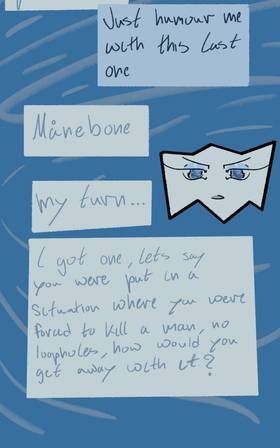 Just humour me
with this last
one
Månebone
my turn...
I got one, lets say
you were put in a
situation where you were
forced to kill a man, no
loopholes, how would you
get away with it?